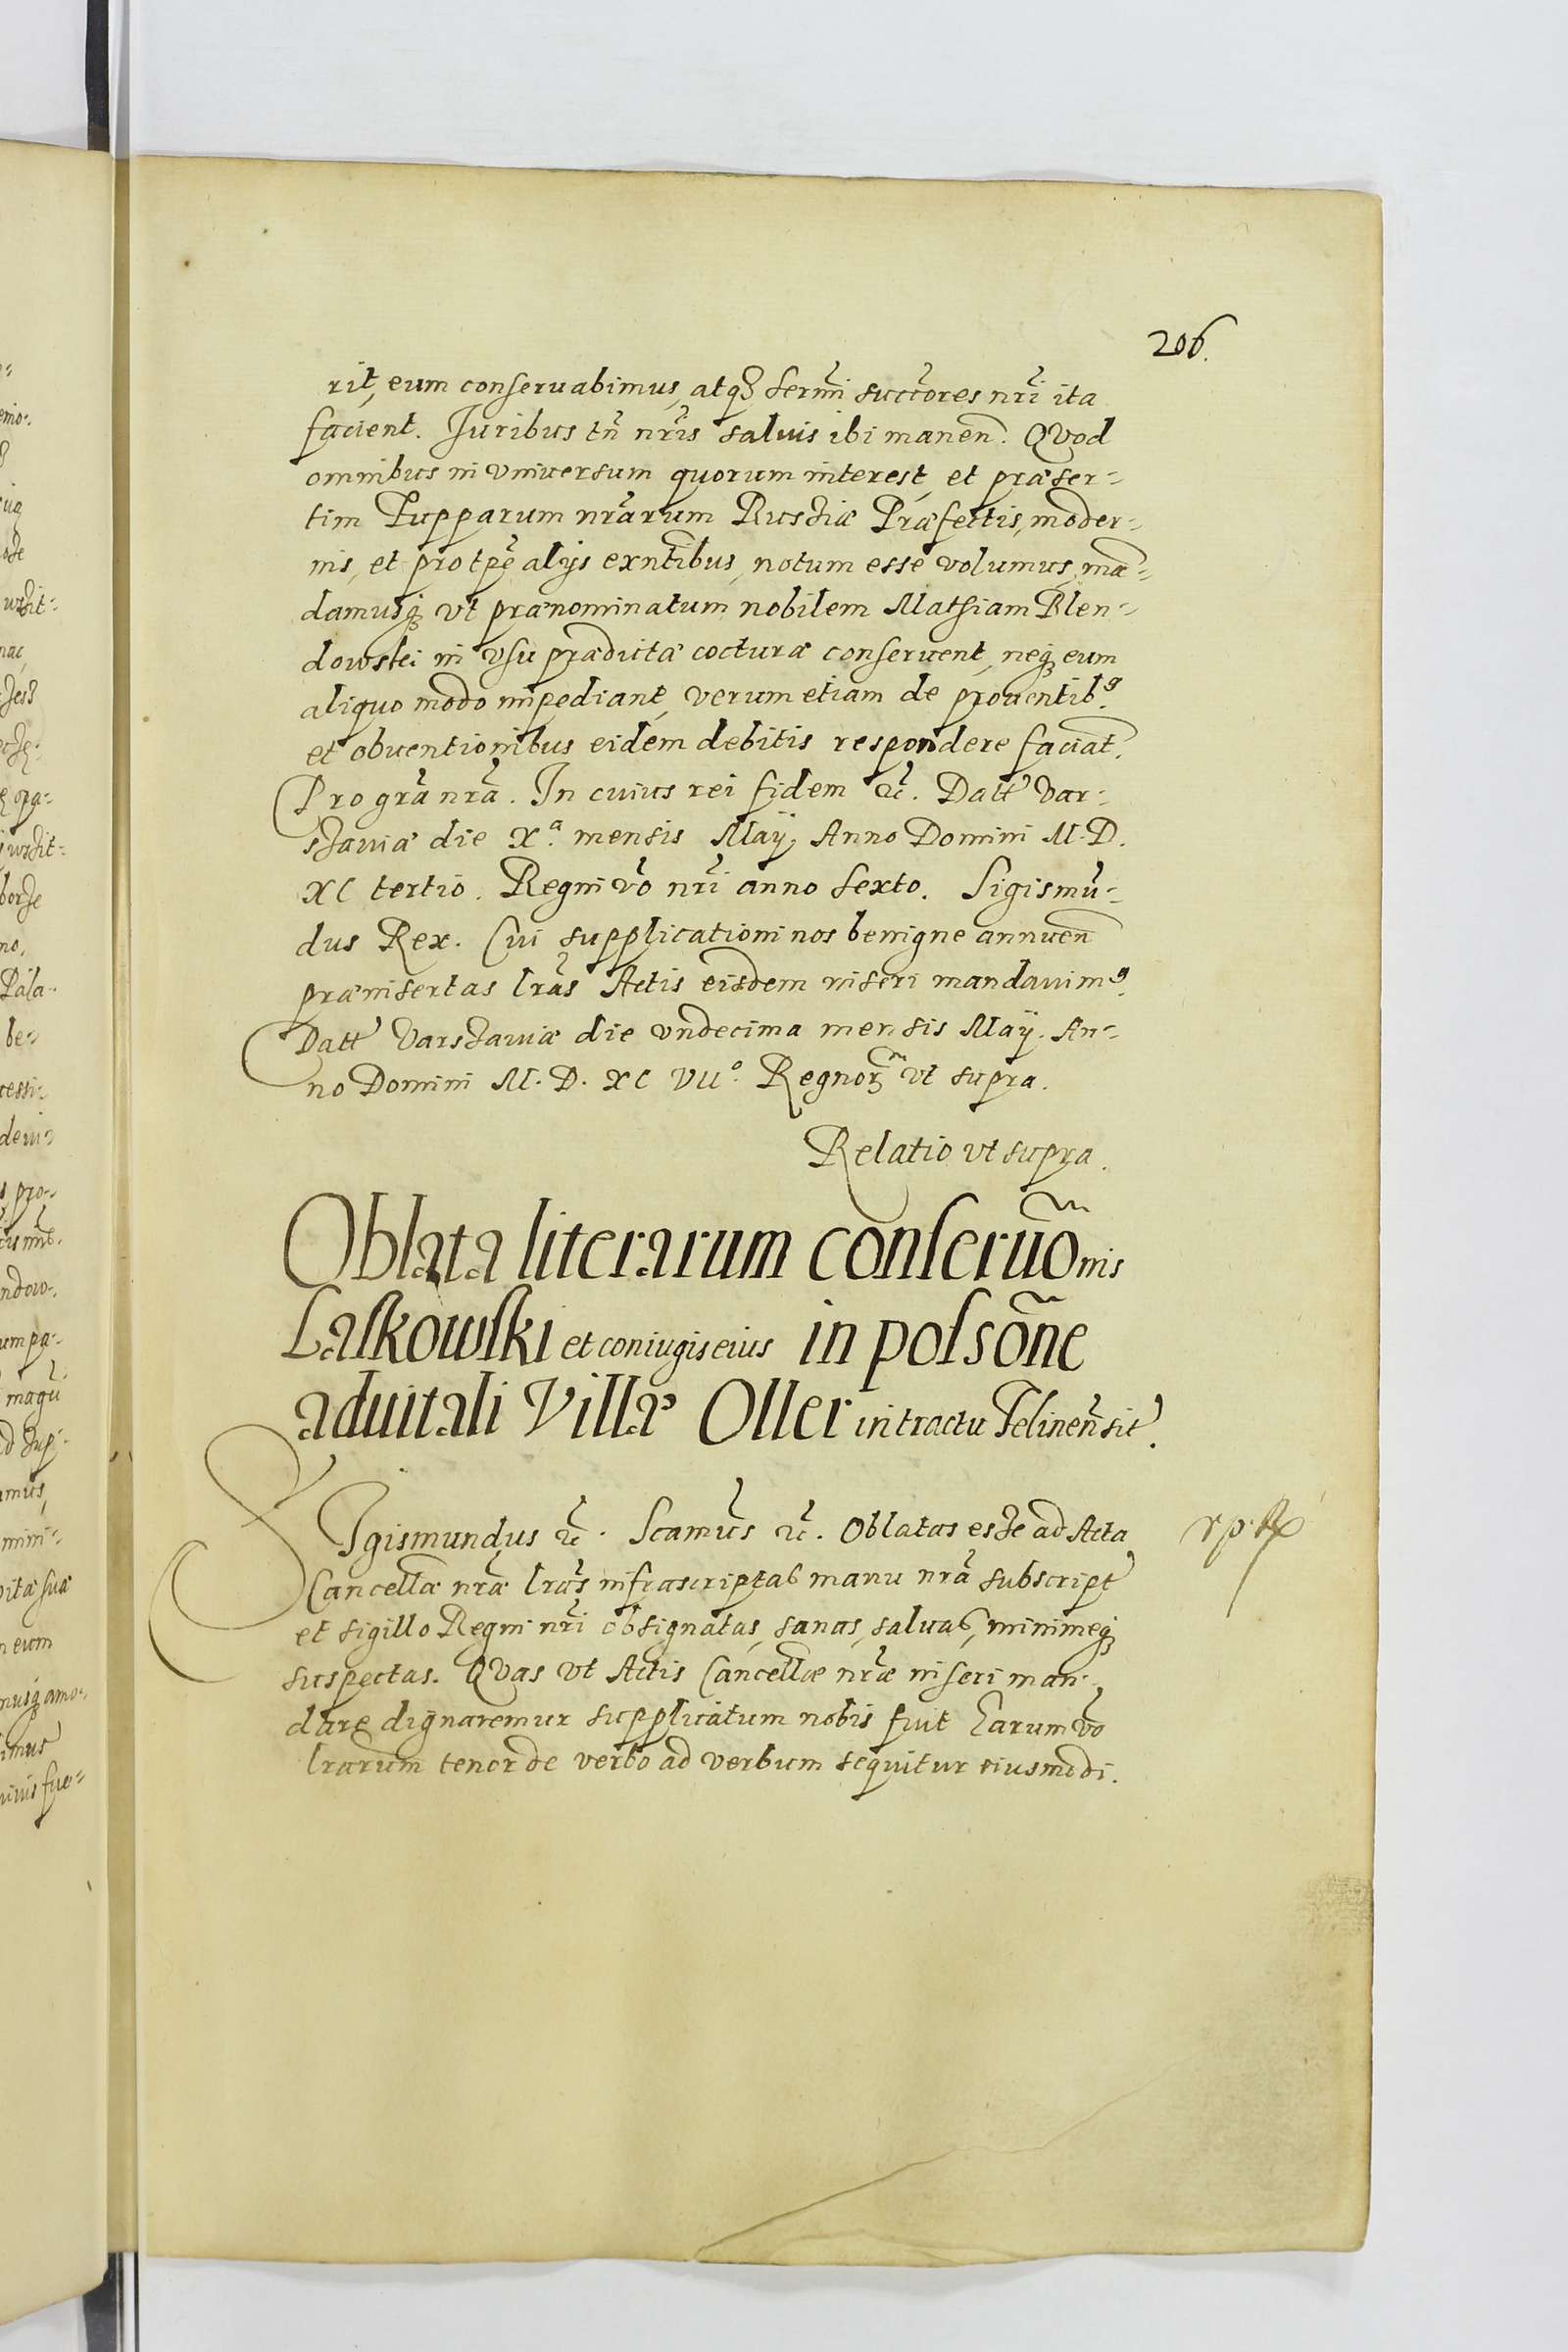 206.
rit, eum conseruabimus, atq₃ sermi succores nri ita
facient. Iuribus tn nris saluis ibi manen. Quod
omnibus in vniuersum quorum interest, et præser-
tim Zupparum nrarum Russiæ Præfectis, moder-
nis, et pro tpe alijs exntibus, notum esse volumus, mā-
damusq₃ vt prænominatum nobilem Mathiam Blen-
dowski in vsu prædictæ cocturæ conseruent, neq₃ eum
aliquo modo impediant, verum etiam de prouentib9.
et obuentionibus eidem debitis respondere faciāt.
Pro gra nra. In cuius rei fidem &c. Datt Var-
schauiæ die Xa. mensis Maÿ, Anno Domini M.D.
XC tertio. Regni vo nri anno sexto. Sigismū-
dus Rex. Cui supplicationi nos benigne annuen
præinsertas lras Actis eisdem inseri mandauim9.
Datt Varschauiæ die vndecima mensis Maÿ. An-
no Domini M.D.XC VIIo. Regnor₃ vt supra.
Relatio vt supra.
Oblata literarum conseruōnis
Laskowski et coniugis eius in possōne
aduitali Villæ Oller in tractu Felinen sit.
SIgismundus &c. Scamus &c. Oblatas esse ad Acta
Cancellæ nræ lras infrascriptas manu nra subscript
et sigillo Regni nri obsignatas, sanas, saluas, minimeq₃
suspectas. Quas vt Actis Cancellæ nræ inseri man-
dare dignaremur supplicatum nobis fuit Earum vo
lrarum tenor de verbo ad verbum sequitur eiusmodi.